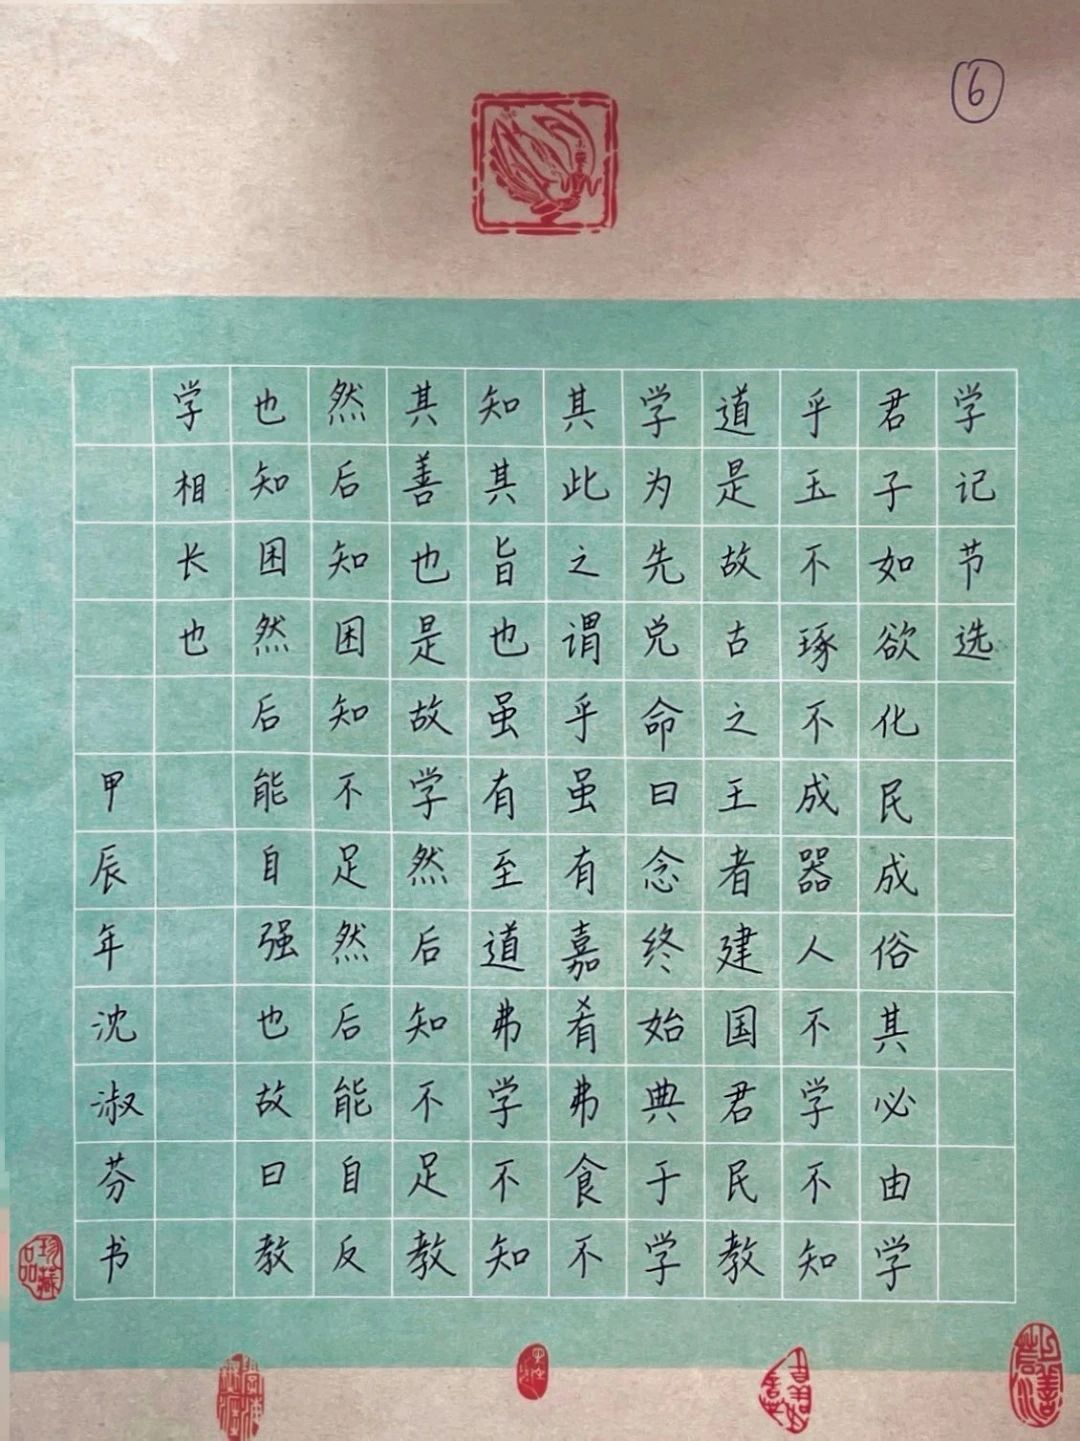 6
学记节选
君子如欲化民成俗其必由学
乎玉不琢不成器人不学不知
道是故古之王者建国君民教
学为先兑命曰念终始典于学
其此之谓乎虽有嘉肴弗食不
知其旨也虽有至道弗学不知
其善也是故学然后知不足教
然后知困知不足然后能自反
也知困然后能自强也故曰教
学相长也
甲辰年沈淑芬书
珍藏